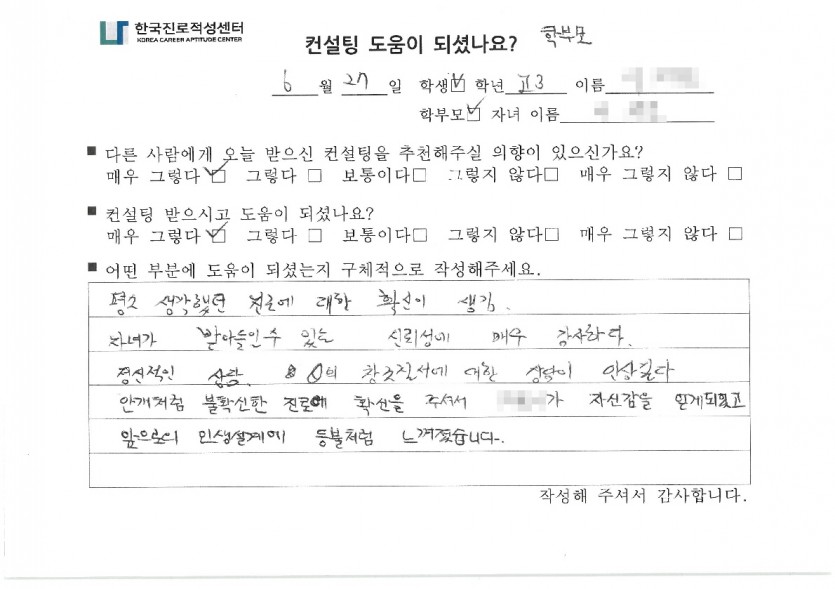 한국진로적성센터
KOREA CAREER APTITUDE CENTER
컨설팅 도움이 되셨나요? 학부모
6월 27일 학생☑ 학년 고3 이름
학부모☑ 자녀 이름
■ 다른 사람에게 오늘 받으신 컨설팅을 추천해주실 의향이 있으신가요?
매우 그렇다 ☑ 그렇다 □ 보통이다□ 그렇지 않다□ 매우 그렇지 않다 □
■ 컨설팅 받으시고 도움이 되셨나요?
매우 그렇다 ☑ 그렇다 □ 보통이다□ 그렇지 않다□ 매우 그렇지 않다 □
■ 어떤 부분에 도움이 되셨는지 구체적으로 작성해주세요.
평소 생각했던 진로에 대한 확신이 생김.
자녀가 받아들인수 있는 신뢰성에 매우 감사하다.
정신적인 상담. 의 창조질서에 대한 상담이 인상깊다
안개처럼 불확신한 진로에 확신을 주셔서 가 자신감을 얻게되었고
앞으로의 인생설계에 등불처럼 느껴졌습니다.
작성해 주셔서 감사합니다.